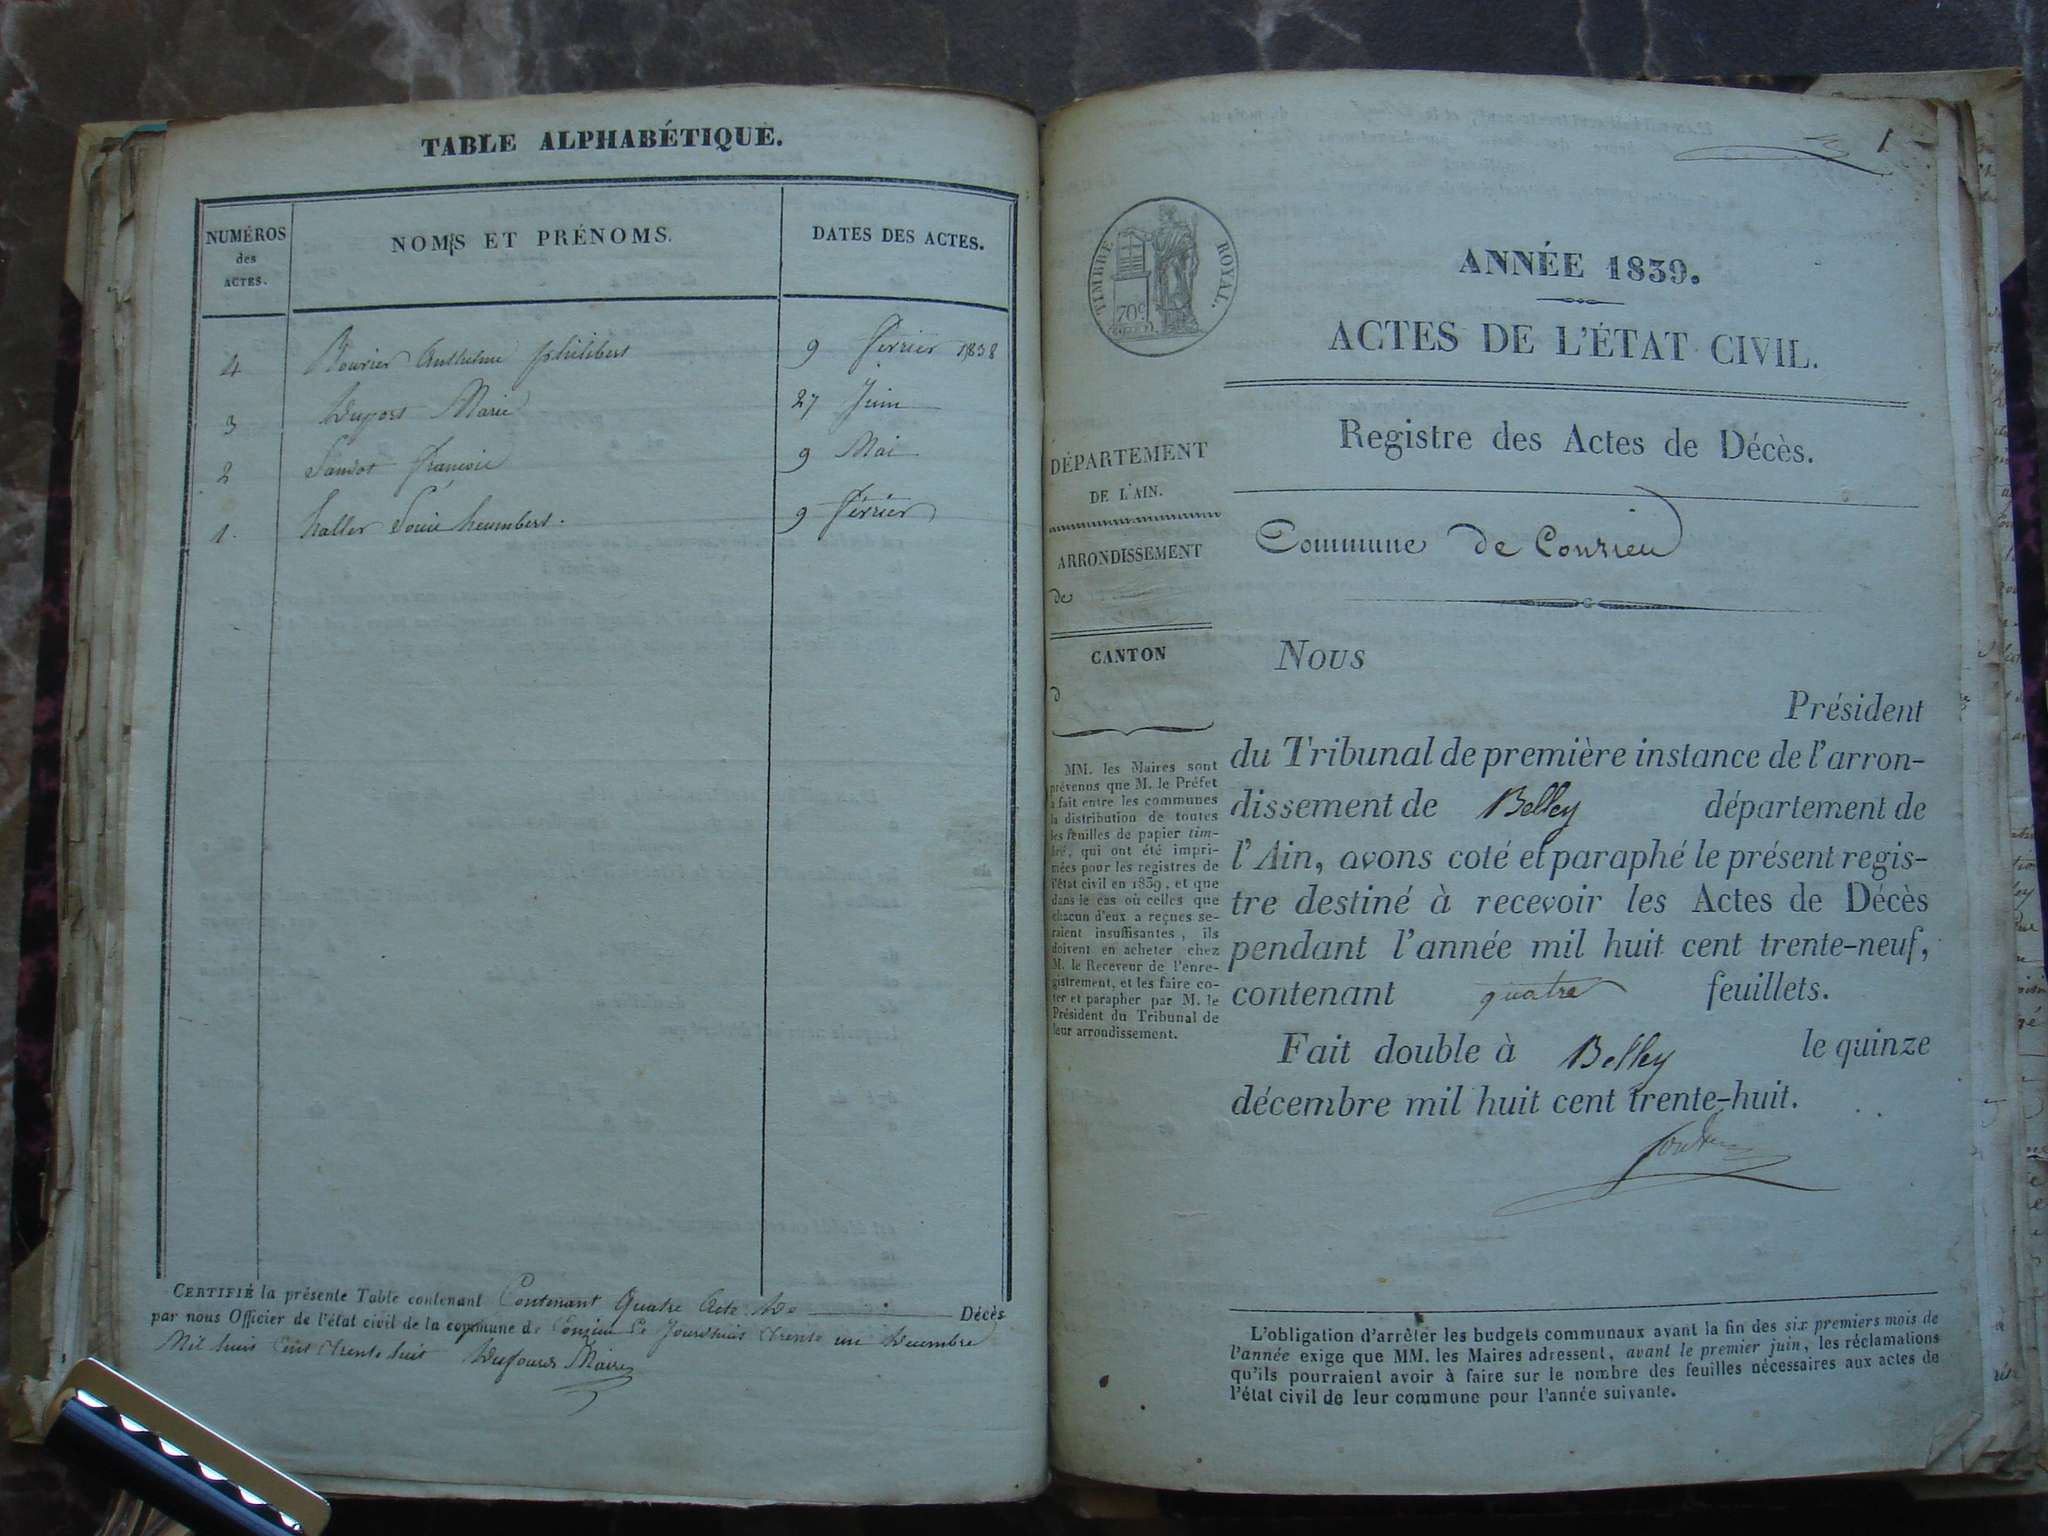 TABLE ALPHABÉTIQUE.
NUMÉROS
des
ACTES.
NOMS ET PRÉNOMS.
DATES DES ACTES.
4 philibert 9 février 1838
3 Marie 27 Juin
2 9 Mai
1. haller 9 février
CERTIFIÉ la présente Table contenant Contenant quatre acte De Décès
par nous Officier de l'état civil de la commune de Conzieu Le Jourdhuis trente un Decembre
Mil huis Cent trente huit Maire
1
TIMBRE ROYAL.
70c
ANNÉE 1839.
ACTES DE L'ÉTAT CIVIL.
Registre des Actes de Décès.
Commune de Conzieu
DÉPARTEMENT
DE L'AIN.
ARRONDISSEMENT
de
CANTON
d
MM. les Maires sont
prévenus que M. le Préfet
a fait entre les communes
la distribution de toutes
les feuilles de papier tim-
bré, qui ont été impri-
mées pour les registres de
l'état civil en 1839, et que
dans le cas où celles que
chacun d'eux a reçues se-
raient insuffisantes, ils
doivent en acheter chez
M. le Receveur de l'enre-
gistrement, et les faire co-
ter et parapher par M. le
Président du Tribunal de
leur arrondissement.
NOUS
Président
du Tribunal de première instance de l'arron-
dissement de Belley département de
l'Ain, avons coté et paraphé le présent regis-
tre destiné à recevoir les Actes de Décès
pendant l'année mil huit cent trente-neuf,
contenant quatre feuillets.
Fait double à Belley le quinze
décembre mil huit cent trente-huit.
L'obligation d'arrêter les budgets communaux avant la fin des six premiers mois de
l'année exige que MM. les Maires adressent, avant le premier juin, les réclamations
qu'ils pourraient avoir à faire sur le nombre des feuilles nécessaires aux actes de
l'état civil de leur commune pour l'année suivante.